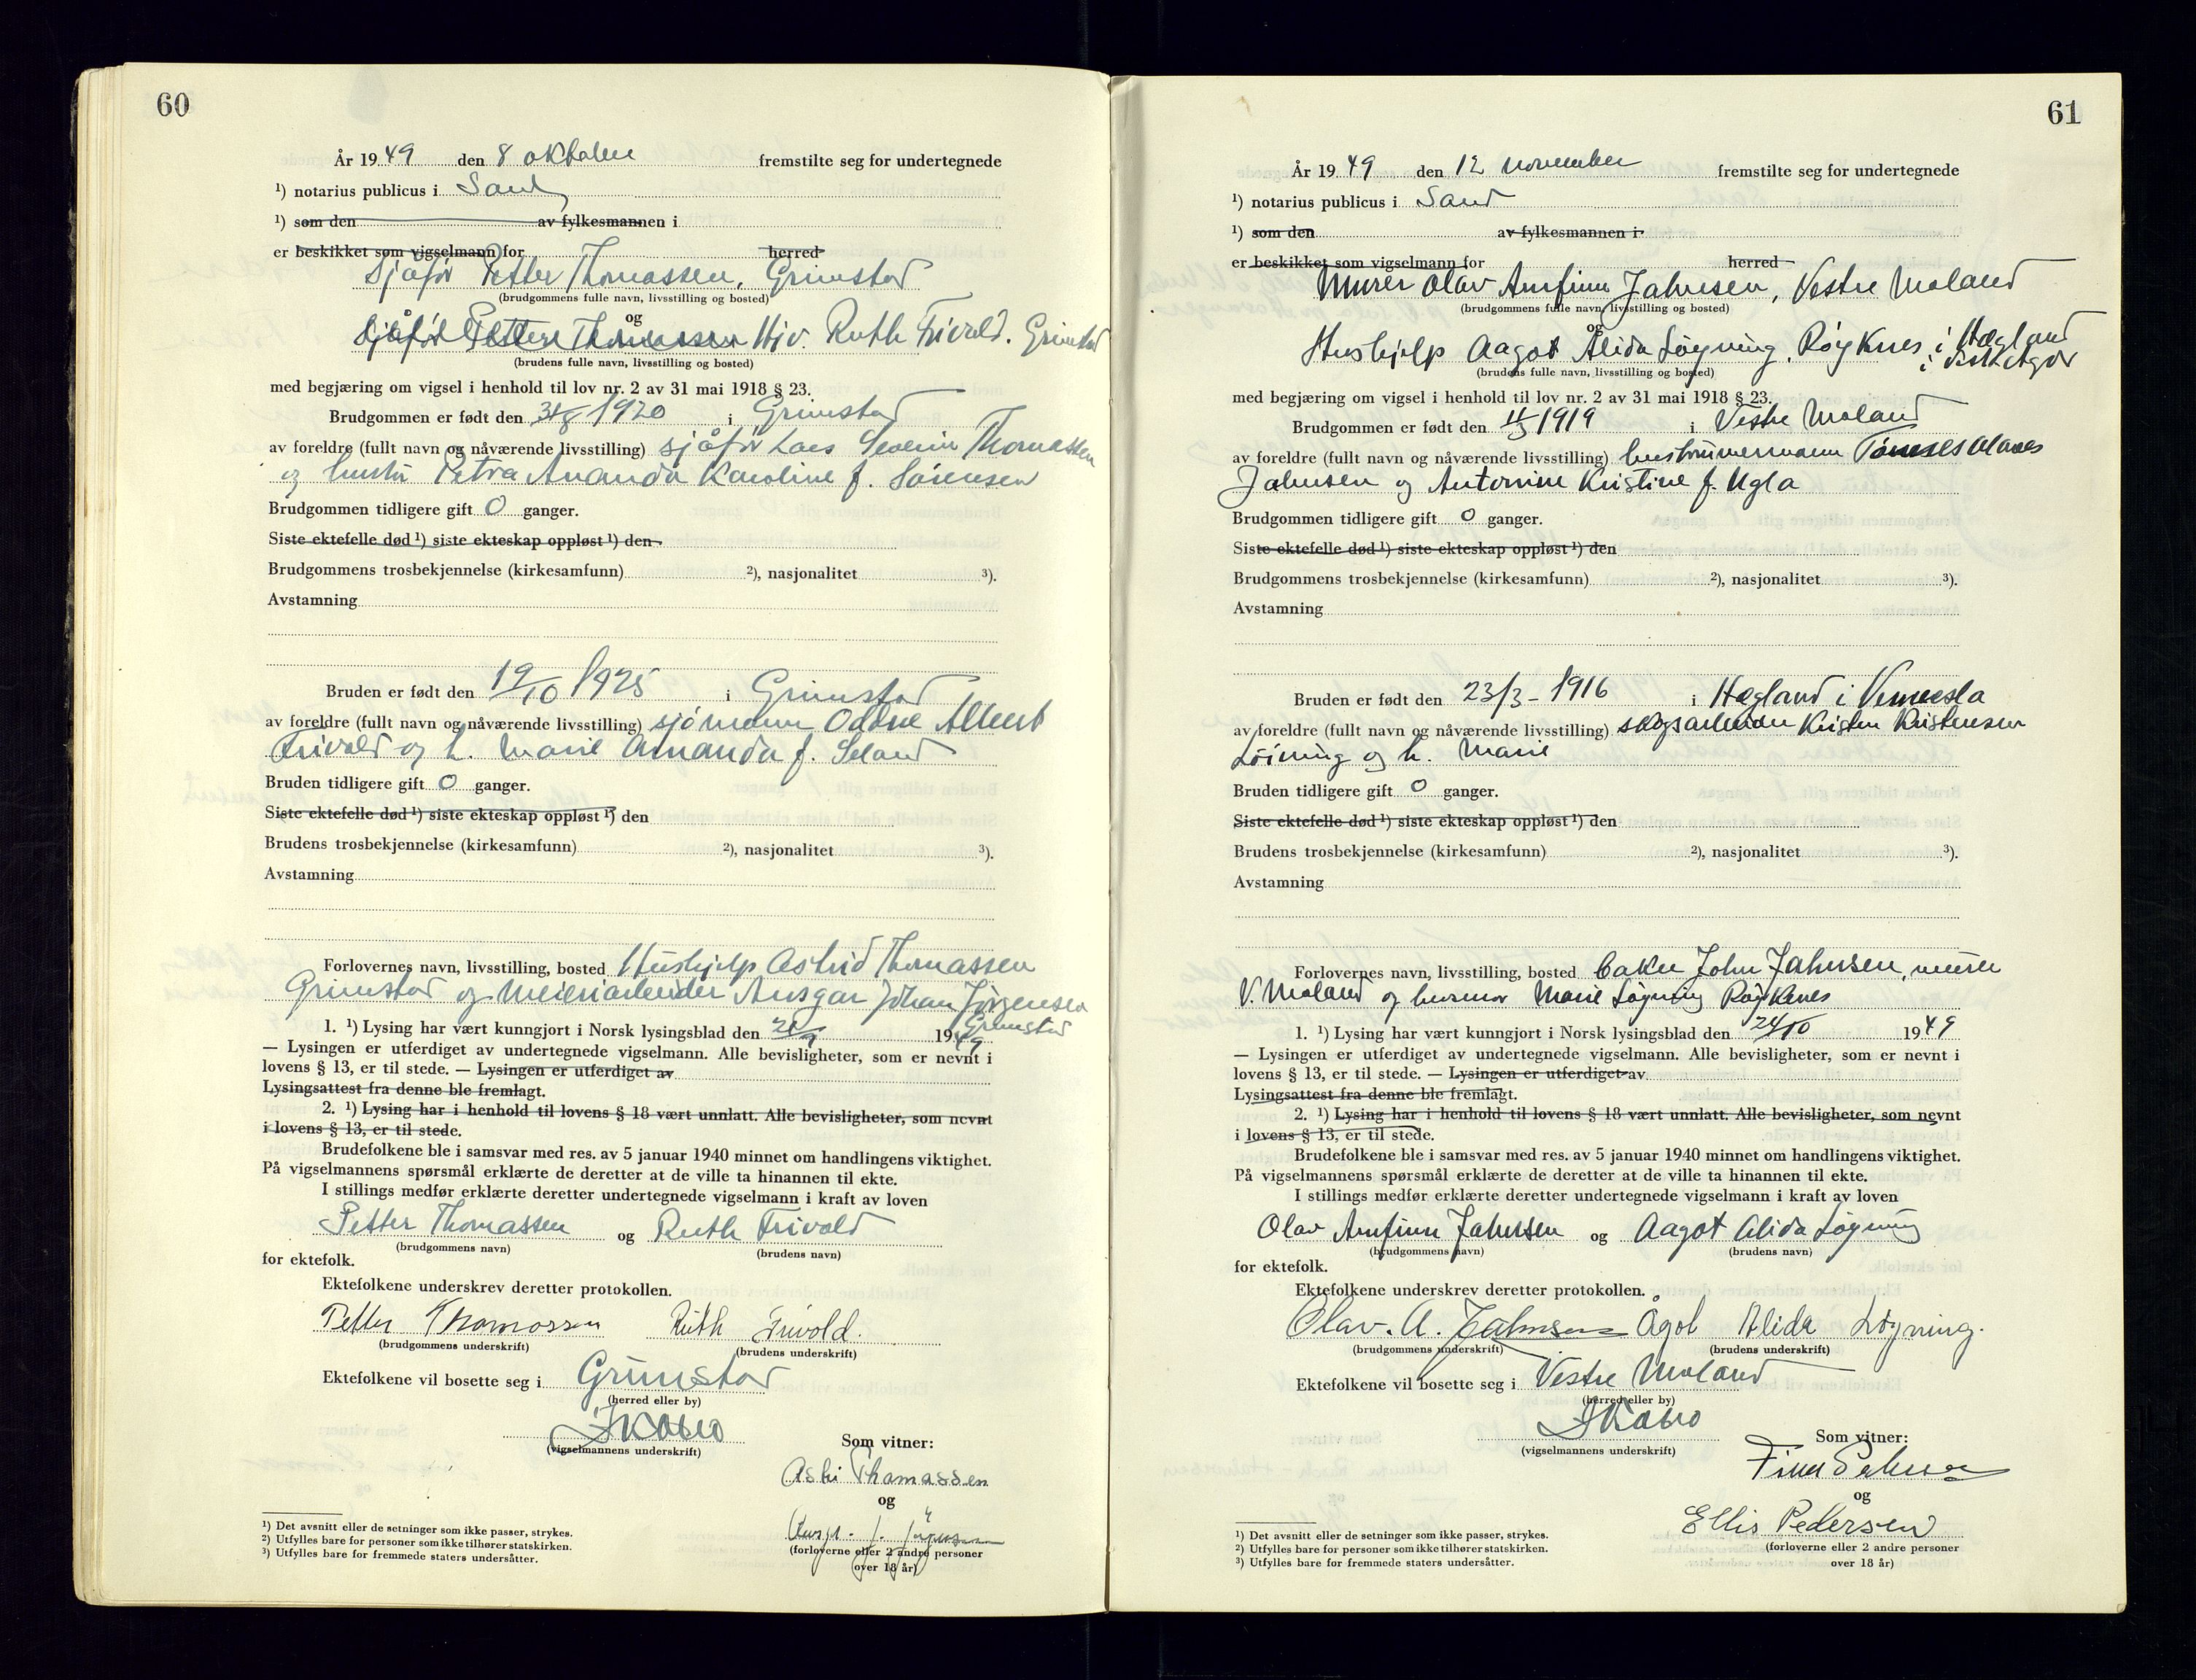 60
År 1949 den 8 oktober fremstilte seg for undertegnede
¹) notarius publicus i Sand
¹) som den av fylkesmannen i
er beskikket som vigselmann for herred
Sjåfør Petter Thomassen, Grimstad
(brudgommens fulle navn, livsstilling og bosted)
og
Sjåfør Petter Thomassen Hjv. Ruth Frivold. Grimstad
(brudens fulle navn, livsstilling og bosted)
med begjæring om vigsel i henhold til lov nr. 2 av 31 mai 1918 § 23.
Brudgommen er født den 31/8 1920 i Grimstad
av foreldre (fullt navn og nåværende livsstilling) sjåfør Lars Severin Thomassen
og hustru Petra Amanda Karoline f. Sørensen
Brudgommen tidligere gift 0 ganger.
Siste ektefelle død ¹) siste ekteskap oppløst ¹) den
Brudgommens trosbekjennelse (kirkesamfunn) ²), nasjonalitet ³).
Avstamning
Bruden er født den 19/10 1925 i Grimstad
av foreldre (fullt navn og nåværende livsstilling) sjømann Oddne Albert
Frivold og h. Marie Amanda f. Seland
Bruden tidligere gift 0 ganger.
Siste ektefelle død ¹) siste ekteskap oppløst ¹) den
Brudens trosbekjennelse (kirkesamfunn) ²), nasjonalitet ³).
Avstamning
Forlovernes navn, livsstilling, bosted Hushjelp Astrid Thomassen
Grimstad og meieriarbeider Ansgar Johan Jørgensen
Grimstad
1. ¹) Lysing har vært kunngjort i Norsk lysingsblad den 1949
— Lysingen er utferdiget av undertegnede vigselmann. Alle bevisligheter, som er nevnt i
lovens § 13, er til stede. — Lysingen er utferdiget av
Lysingsattest fra denne ble fremlagt.
2. ¹) Lysing har i henhold til lovens § 18 vært unnlatt. Alle bevisligheter, som nevnt
i lovens § 13, er til stede.
Brudefolkene ble i samsvar med res. av 5 januar 1940 minnet om handlingens viktighet.
På vigselmannens spørsmål erklærte de deretter at de ville ta hinannen til ekte.
I stillings medfør erklærte deretter undertegnede vigselmann i kraft av loven
Petter Thomassen og Ruth Frivold
(brudgommens navn) (brudens navn)
for ektefolk.
Ektefolkene underskrev deretter protokollen.
Petter Thomassen Ruth Frivold.
(brudgommens underskrift) (brudens underskrift)
Ektefolkene vil bosette seg i Grimstad
(herred eller by)
(vigselmannens underskrift)
Som vitner:
Thomassen
og
(forloverne eller 2 andre personer
over 18 år)
¹) Det avsnitt eller de setninger som ikke passer, strykes.
²) Utfylles bare for personer som ikke tilhører statskirken.
³) Utfylles bare for fremmede staters undersåtter.
61
År 1949 den 12 november fremstilte seg for undertegnede
¹) notarius publicus i Sand
¹) som den av fylkesmannen i
er beskikket som vigselmann for herred
Murer Olav Arnfinn Jahnsen, Vestre Moland
(brudgommens fulle navn, livsstilling og bosted)
og
Hushjelp Aagot Alida Løyning, Røyknes i Hægland
i Vest Agder
(brudens fulle navn, livsstilling og bosted)
med begjæring om vigsel i henhold til lov nr. 2 av 31 mai 1918 § 23.
Brudgommen er født den 11/3 1919 i Vestre Moland
av foreldre (fullt navn og nåværende livsstilling) hustømmermann
Jahnsen og Antonine Kristine f. Ugla
Brudgommen tidligere gift 0 ganger.
Siste ektefelle død ¹) siste ekteskap oppløst ¹) den
Brudgommens trosbekjennelse (kirkesamfunn) ²), nasjonalitet ³).
Avstamning
Bruden er født den 23/3 - 1916 i Hægland i Vennesla
av foreldre (fullt navn og nåværende livsstilling) skogsarbeider Kristen Kristensen
Løining og h. Marie
Bruden tidligere gift 0 ganger.
Siste ektefelle død ¹) siste ekteskap oppløst ¹) den
Brudens trosbekjennelse (kirkesamfunn) ²), nasjonalitet ³).
Avstamning
Forlovernes navn, livsstilling, bosted John Jahnsen, murer
V. Moland og husmor Marie Løyning Røyknes
1. ¹) Lysing har vært kunngjort i Norsk lysingsblad den 24/10 1949
— Lysingen er utferdiget av undertegnede vigselmann. Alle bevisligheter, som er nevnt i
lovens § 13, er til stede. — Lysingen er utferdiget av
Lysingsattest fra denne ble fremlagt.
2. ¹) Lysing har i henhold til lovens § 18 vært unnlatt. Alle bevisligheter, som nevnt
i lovens § 13, er til stede.
Brudefolkene ble i samsvar med res. av 5 januar 1940 minnet om handlingens viktighet.
På vigselmannens spørsmål erklærte de deretter at de ville ta hinannen til ekte.
I stillings medfør erklærte deretter undertegnede vigselmann i kraft av loven
Olav Arnfinn Jahnsen og Aagot Alida Løyning
(brudgommens navn) (brudens navn)
for ektefolk.
Ektefolkene underskrev deretter protokollen.
Olav. A. Jahnsen Ågot Alida Løyning.
(brudgommens underskrift) (brudens underskrift)
Ektefolkene vil bosette seg i Vestre Moland
(herred eller by)
(vigselmannens underskrift)
Som vitner:
og
Ellis Pedersen
(forloverne eller 2 andre personer
over 18 år)
¹) Det avsnitt eller de setninger som ikke passer, strykes.
²) Utfylles bare for personer som ikke tilhører statskirken.
³) Utfylles bare for fremmede staters undersåtter.